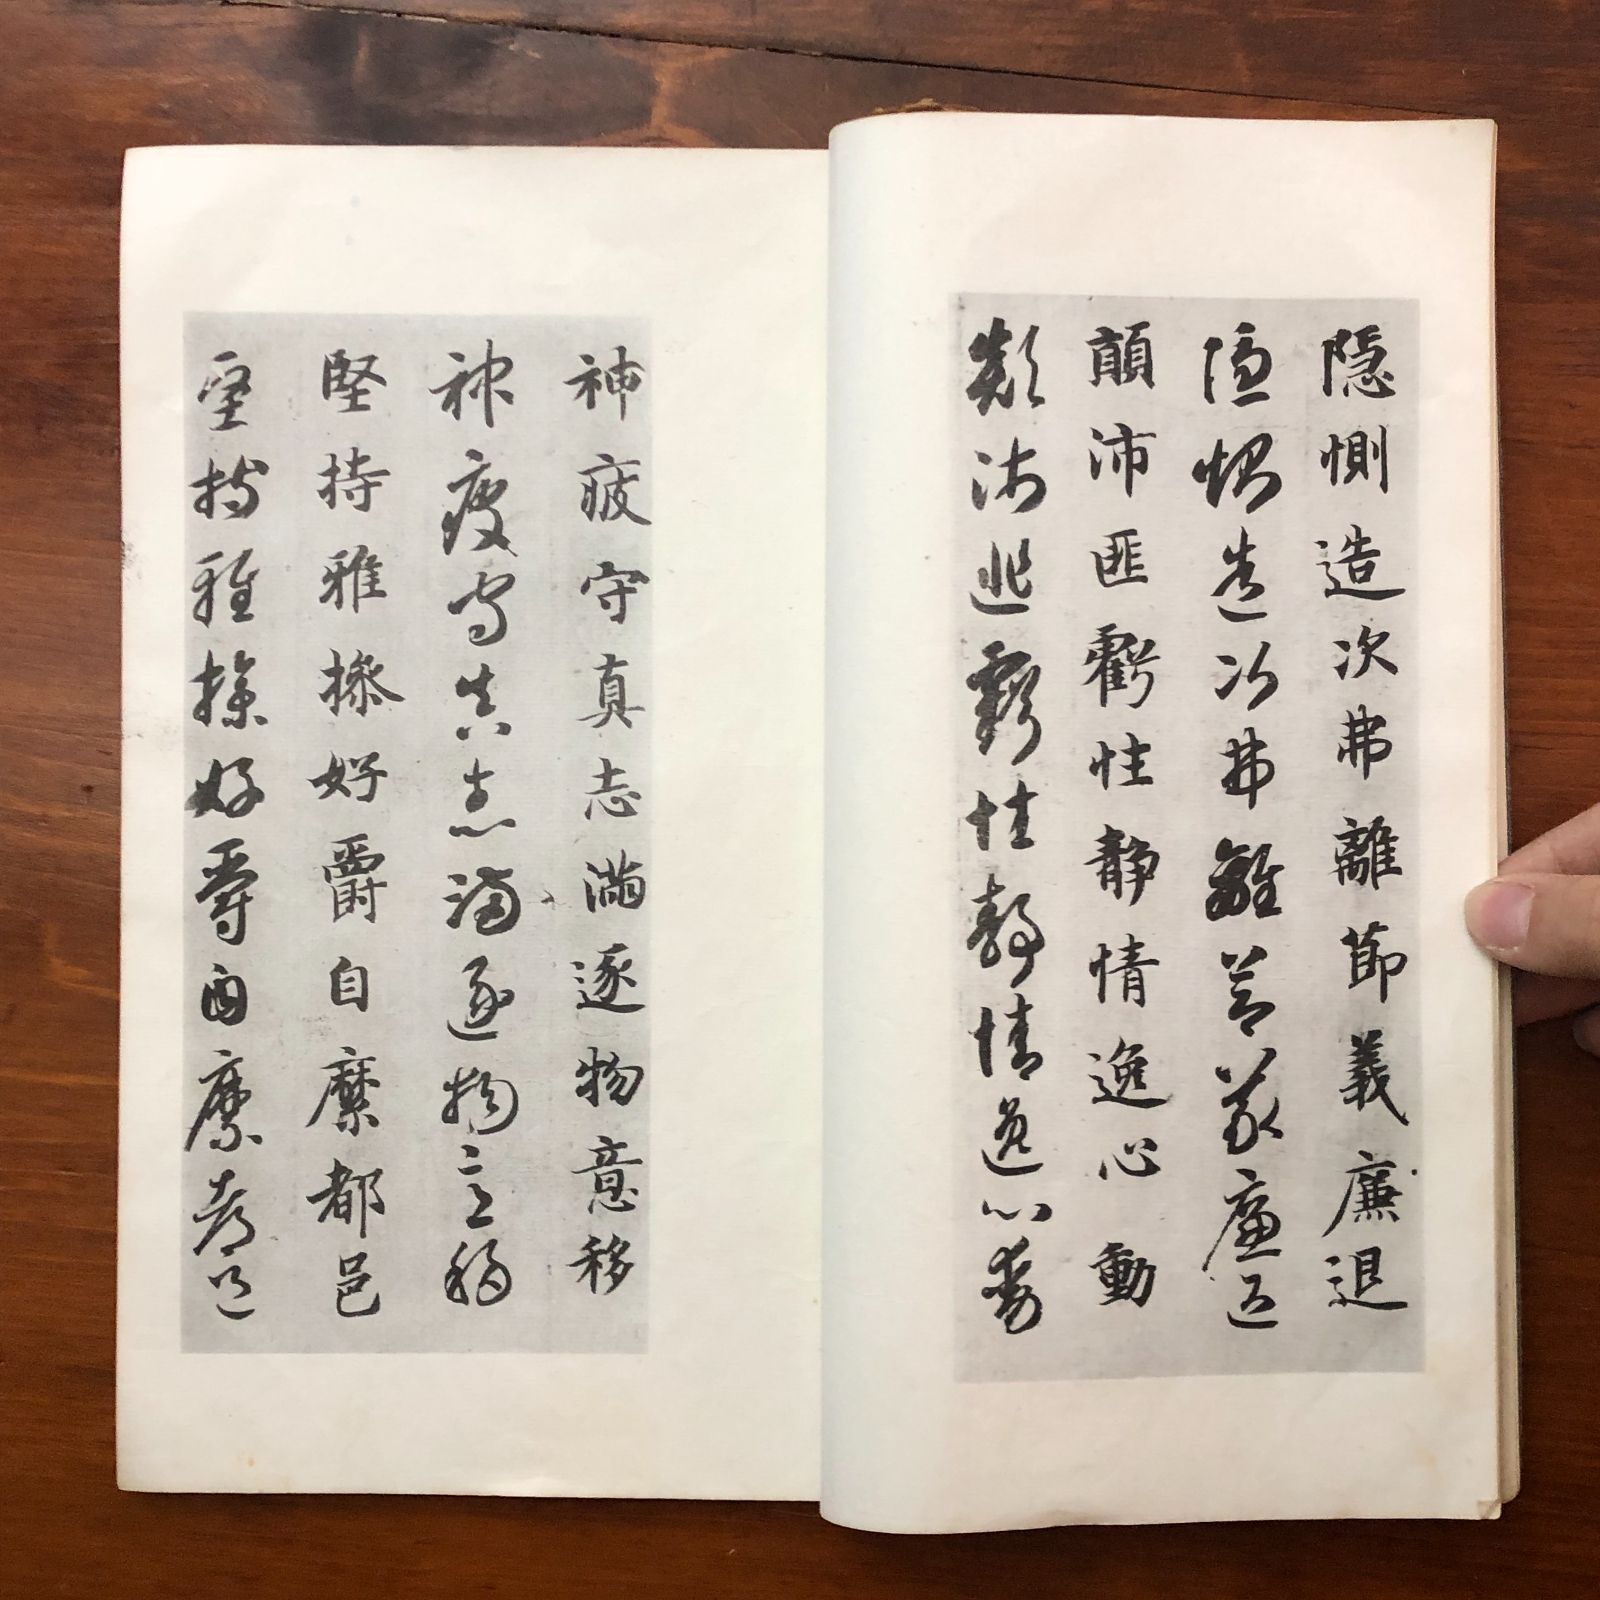 隱惻造次弗離節義廉退
隱惻造次弗離節義廉退
顛沛匪虧性靜情逸心動
顛沛匪虧性靜情逸心動
神疲守真志滿逐物意移
神疲守真志滿逐物意移
堅持雅操好爵自縻都邑
堅持雅操好爵自縻都邑